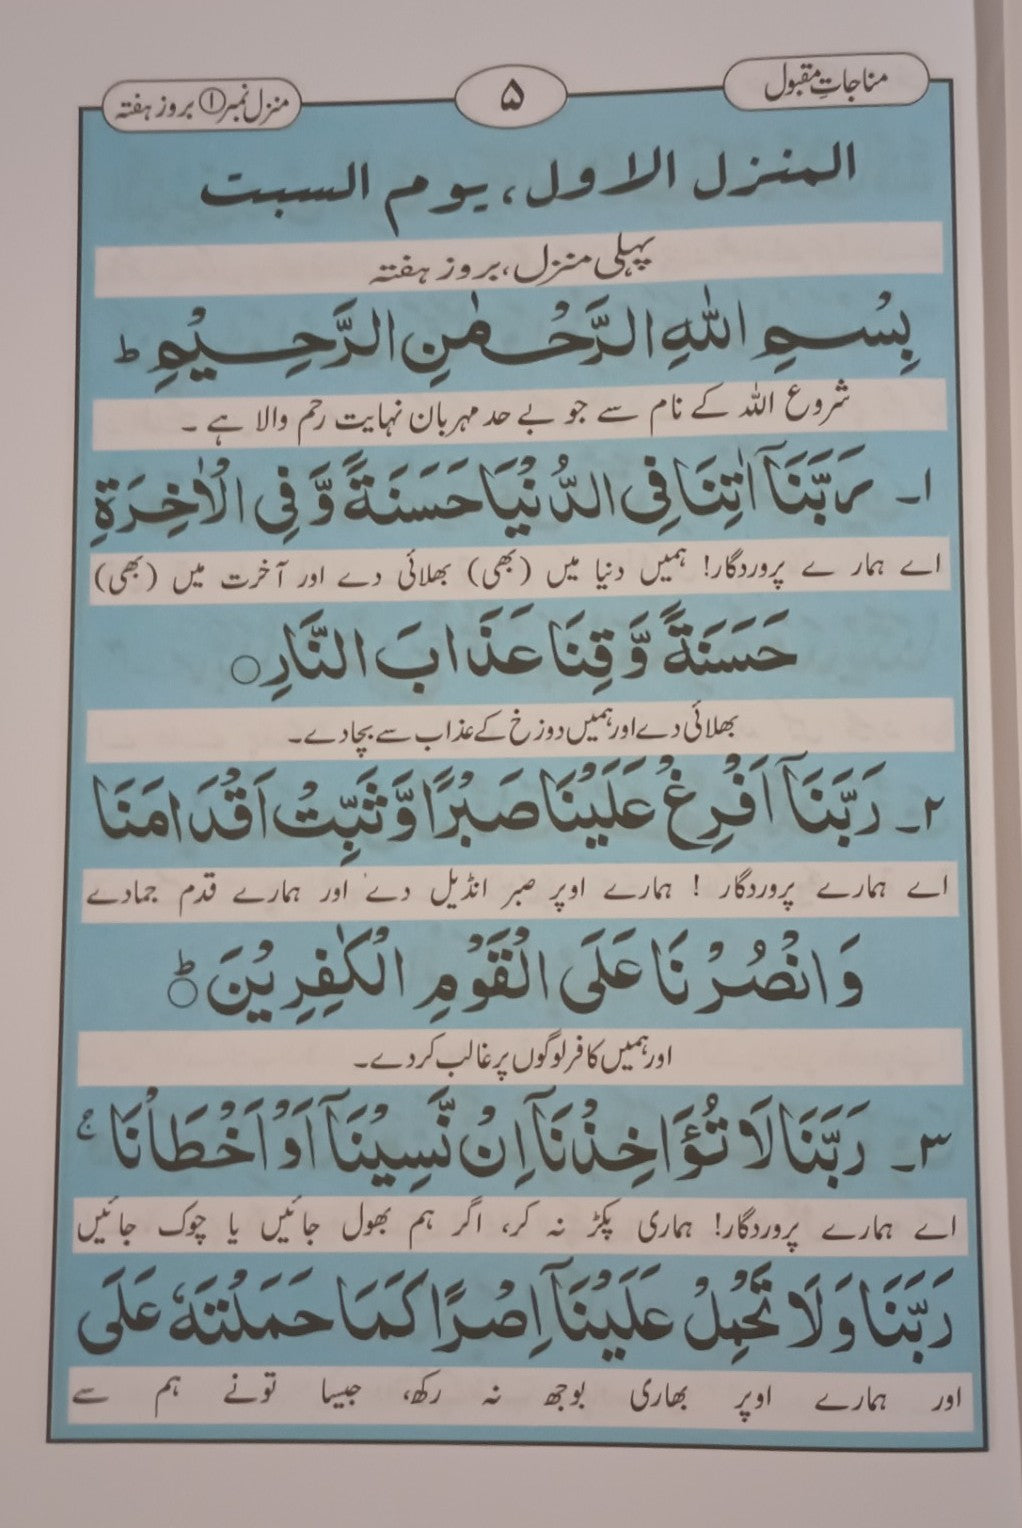 مناجاتِ مقبول
۵
منزل نمبر ① بروز ہفتہ
المنزل الاول، یوم السبت
پہلی منزل، بروز ہفتہ
بِسْمِ اللّٰهِ الرَّحْمٰنِ الرَّحِيْمِ ط
شروع اللہ کے نام سے جو بے حد مہربان نہایت رحم والا ہے ۔
۱۔ رَبَّنَآ اٰتِنَا فِی الدُّنْيَا حَسَنَةً وَّ فِی الْاٰخِرَةِ
اے ہمار ے پروردگار! ہمیں دنیا میں (بھی) بھلائی دے اور آخرت میں (بھی)
حَسَنَةً وَّ قِنَا عَذَابَ النَّارِ ○
بھلائی دے اور ہمیں دوزخ کے عذاب سے بچا دے۔
۲۔ رَبَّنَآ اَفْرِغْ عَلَيْنَا صَبْرًا وَّ ثَبِّتْ اَقْدَامَنَا
اے ہمارے پروردگار ! ہمارے اوپر صبر انڈیل دے اور ہمارے قدم جمادے
وَانْصُرْنَا عَلَی الْقَوْمِ الْكٰفِرِيْنَ ○ط
اور ہمیں کافر لوگوں پر غالب کر دے۔
۳۔ رَبَّنَا لَا تُؤَاخِذْنَآ اِنْ نَّسِيْنَآ اَوْ اَخْطَاْنَا ج
اے ہمارے پروردگار! ہماری پکڑ نہ کر، اگر ہم بھول جائیں یا چوک جائیں
رَبَّنَا وَ لَا تَحْمِلْ عَلَيْنَآ اِصْرًا كَمَا حَمَلْتَهٗ عَلَی
اور ہمارے اوپر بھاری بوجھ نہ رکھ، جیسا تونے ہم سے